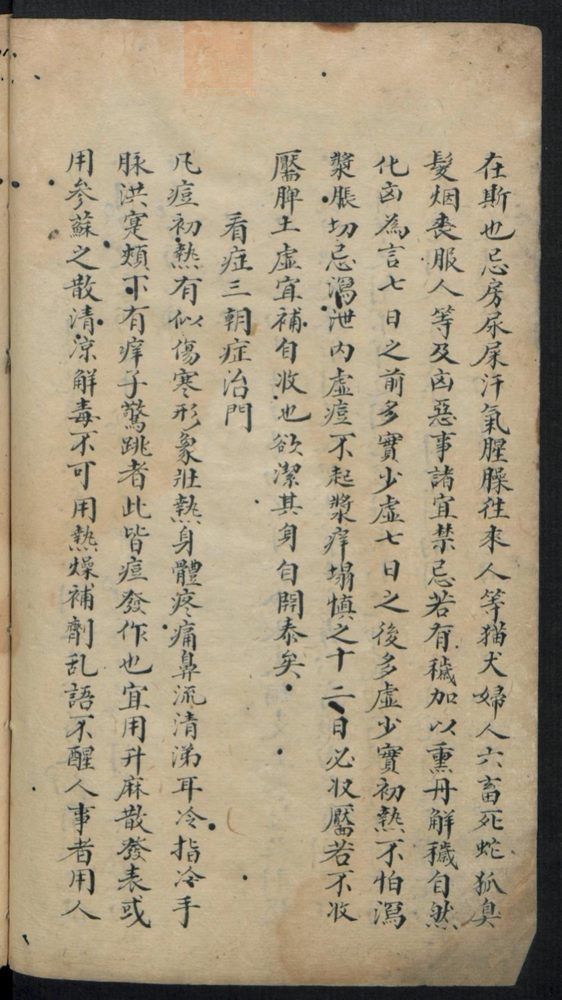 在斯也忌房尿屎汗氣腥臊徃來人等猫犬婦人六畜死蛇狐臭
髮烟丧服人等及凶惡事諸宜禁忌若有穢加以熏丹解穢自然
化凶為言七日之前多實少虛七日之後多虛少實初熱不怕瀉
漿脹切忌瀉泄内虛痘不起漿痒塌慎之十二日必收靨若不收
靨脾土虛宜補自收也欲潔其身自開泰矣
看症三朝症治門
凡痘初熱有似傷寒形象壯熱身體疼痛鼻流清涕耳冷指冷手
脉洪寔頰下有痒子驚跳者此皆痘發作也宜用升麻散發表或
用參蘇之散清凉解毒不可用熱燥補劑乱語不醒人事者用人